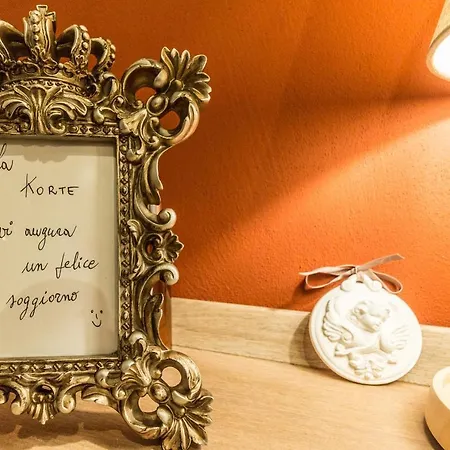 la
KORTE
vi augura
un felice
soggiorno